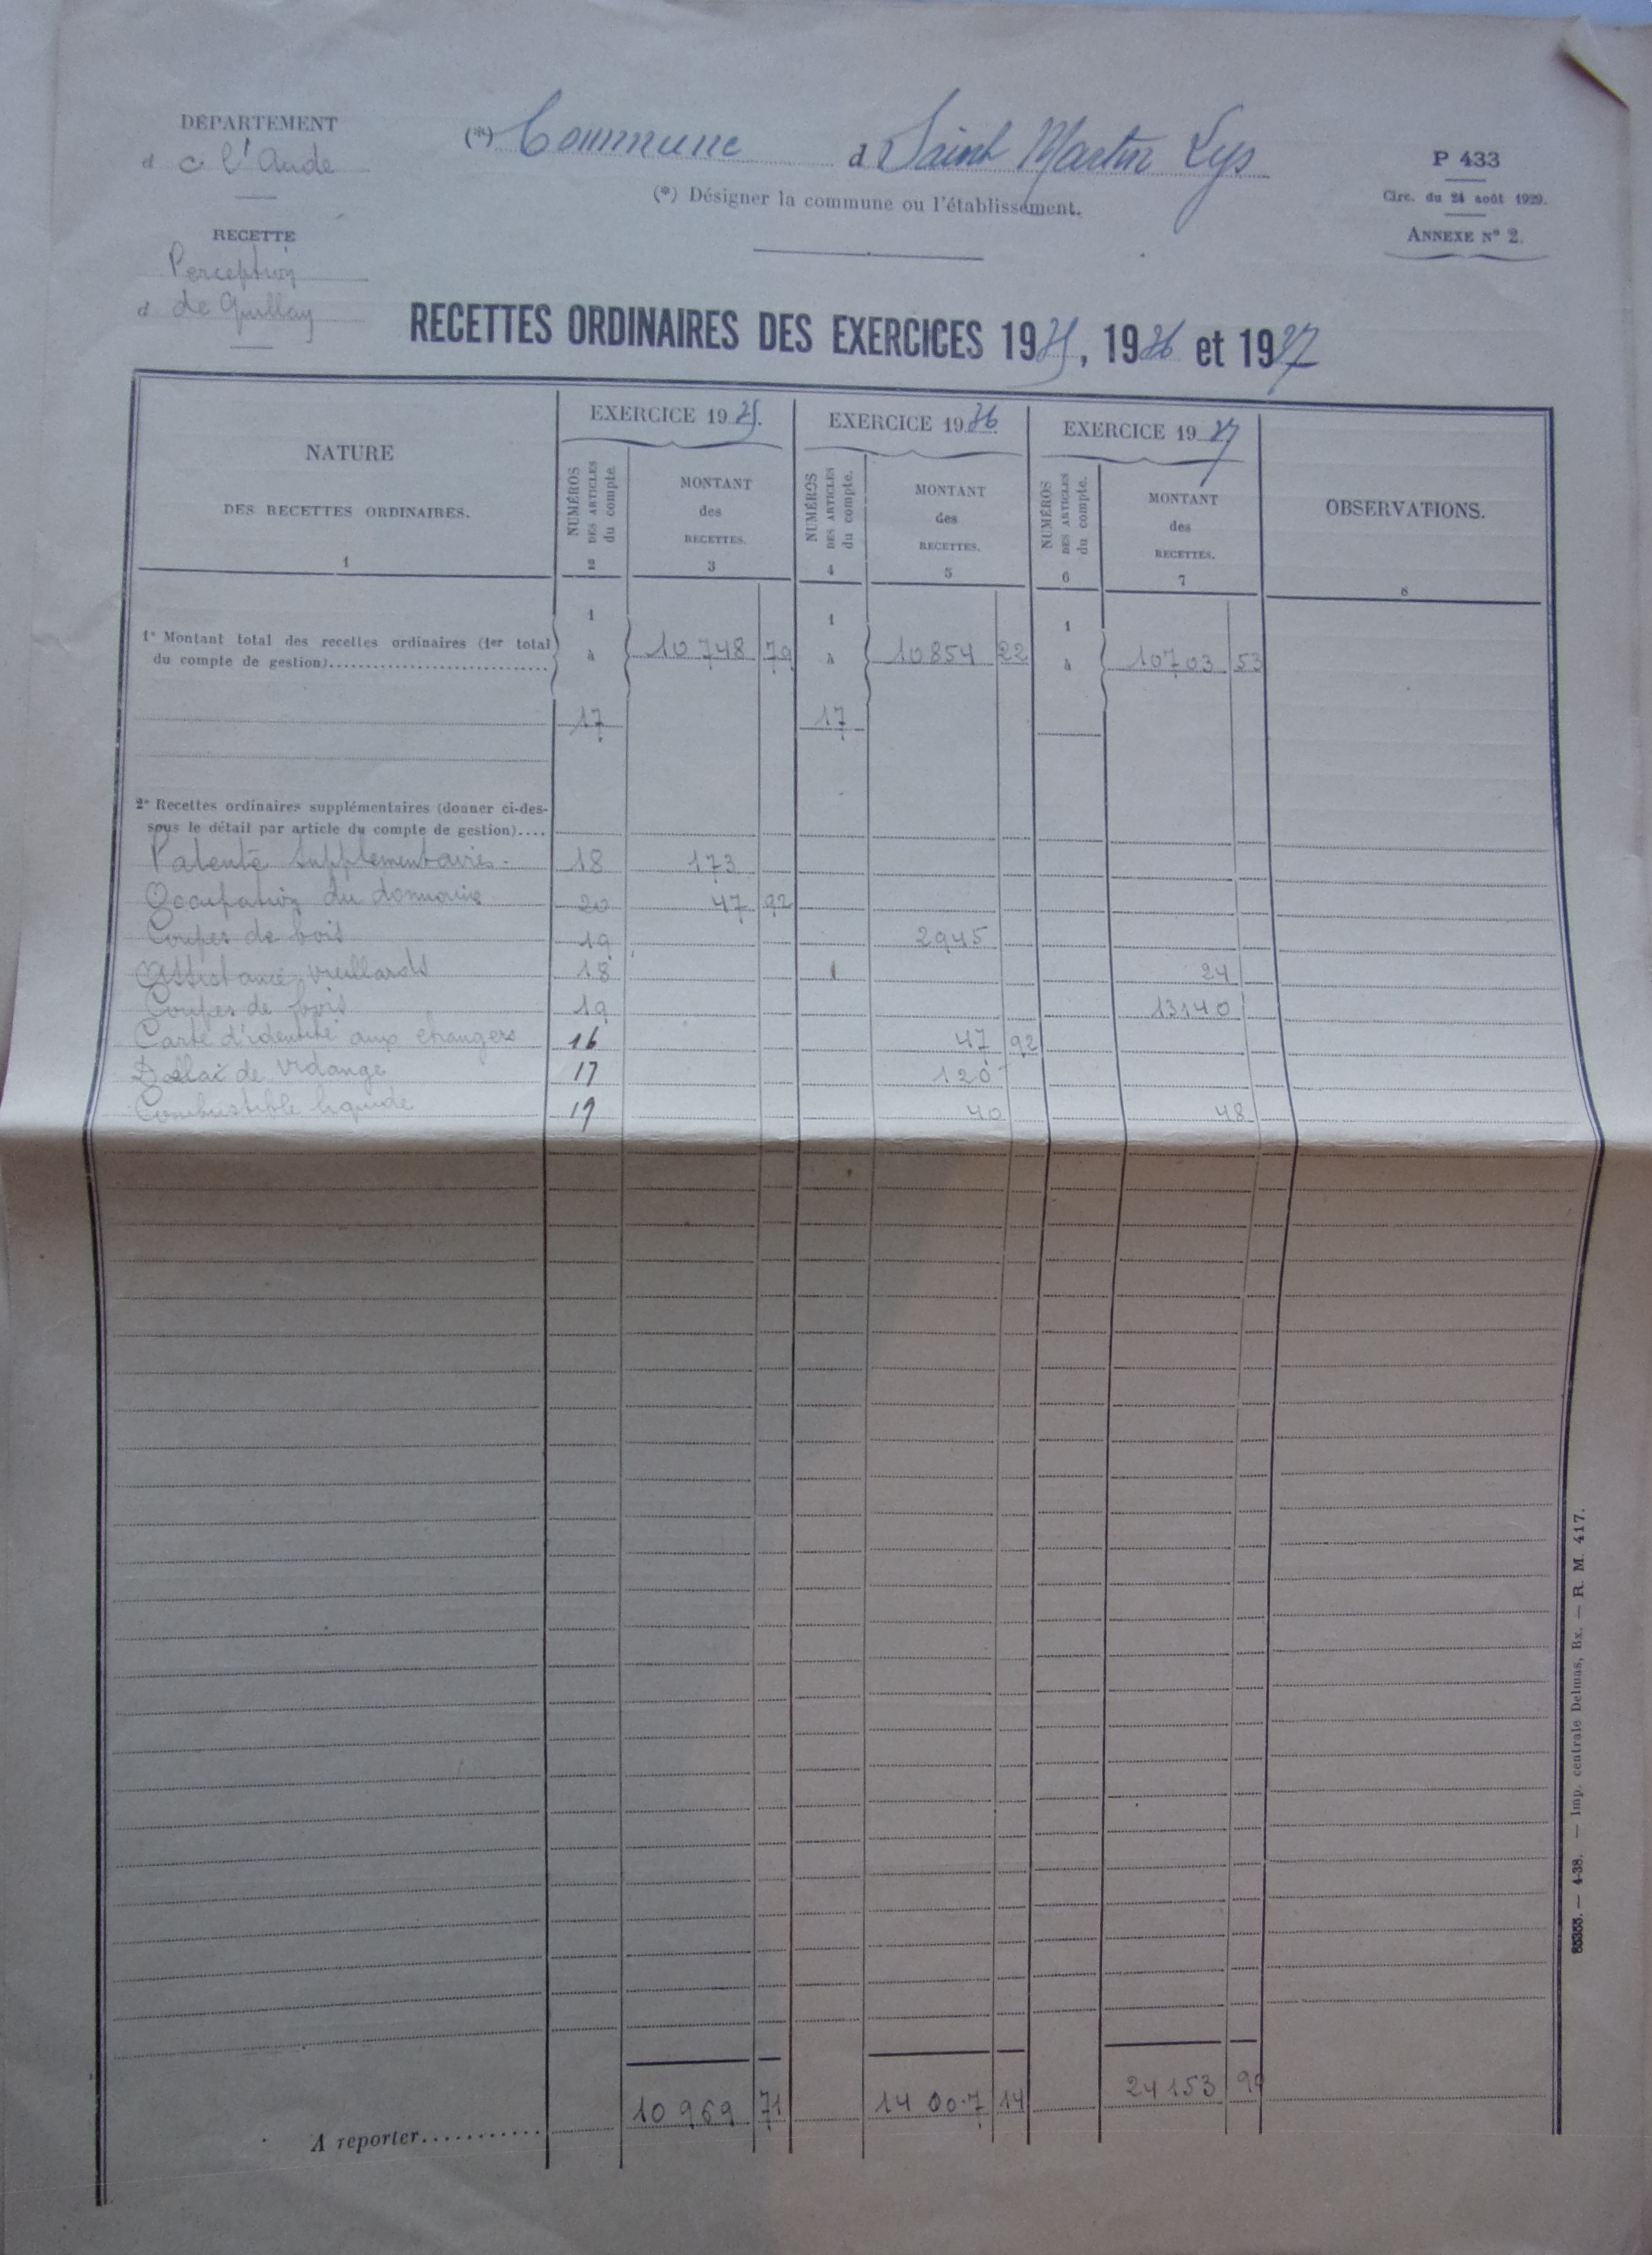 DÉPARTEMENT
d e l'Aude
RECETTE
Perception
d de Quillan
(*) Commune d Saint Martin Lys
(*) Désigner la commune ou l'établissement.
P 433
Circ. du 24 août 1929.
ANNEXE N° 2.
RECETTES ORDINAIRES DES EXERCICES 1935, 1936 et 1937
NATURE
DES RECETTES ORDINAIRES.
1
EXERCICE 1935.
NUMÉROS
DES ARTICLES
du compte.
2
MONTANT
des
RECETTES.
3
EXERCICE 1936
NUMÉROS
DES ARTICLES
du compte.
4
MONTANT
des
RECETTES.
5
EXERCICE 1937
NUMÉROS
DES ARTICLES
du compte.
6
MONTANT
des
RECETTES.
7
OBSERVATIONS.
8
1 1 1
1° Montant total des recettes ordinaires (1er total
du compte de gestion)
à 10748 79 à 10854 22 à 10703 53
17 17
2° Recettes ordinaires supplémentaires (donner ci-des-
sous le détail par article du compte de gestion)....
Patente supplémentaire. 18 173
Occupation du domaine 20 47 92
Coupes de bois 19 2945
Assistance vieillards 18 24
Coupes de bois 19 13140
Carte d'identité aux étrangers 16 47 92
Délai de vidange 17 120
Combustible liquide 19 40 48
A reporter........... 10 969 71 14 007 14 24 153 90
85355. — 4-38. — Imp. centrale Delmas, Bx. — R. M. 417.